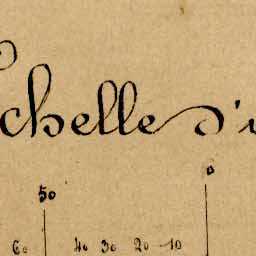 Echelle d'u
50 0
60 40 30 20 10